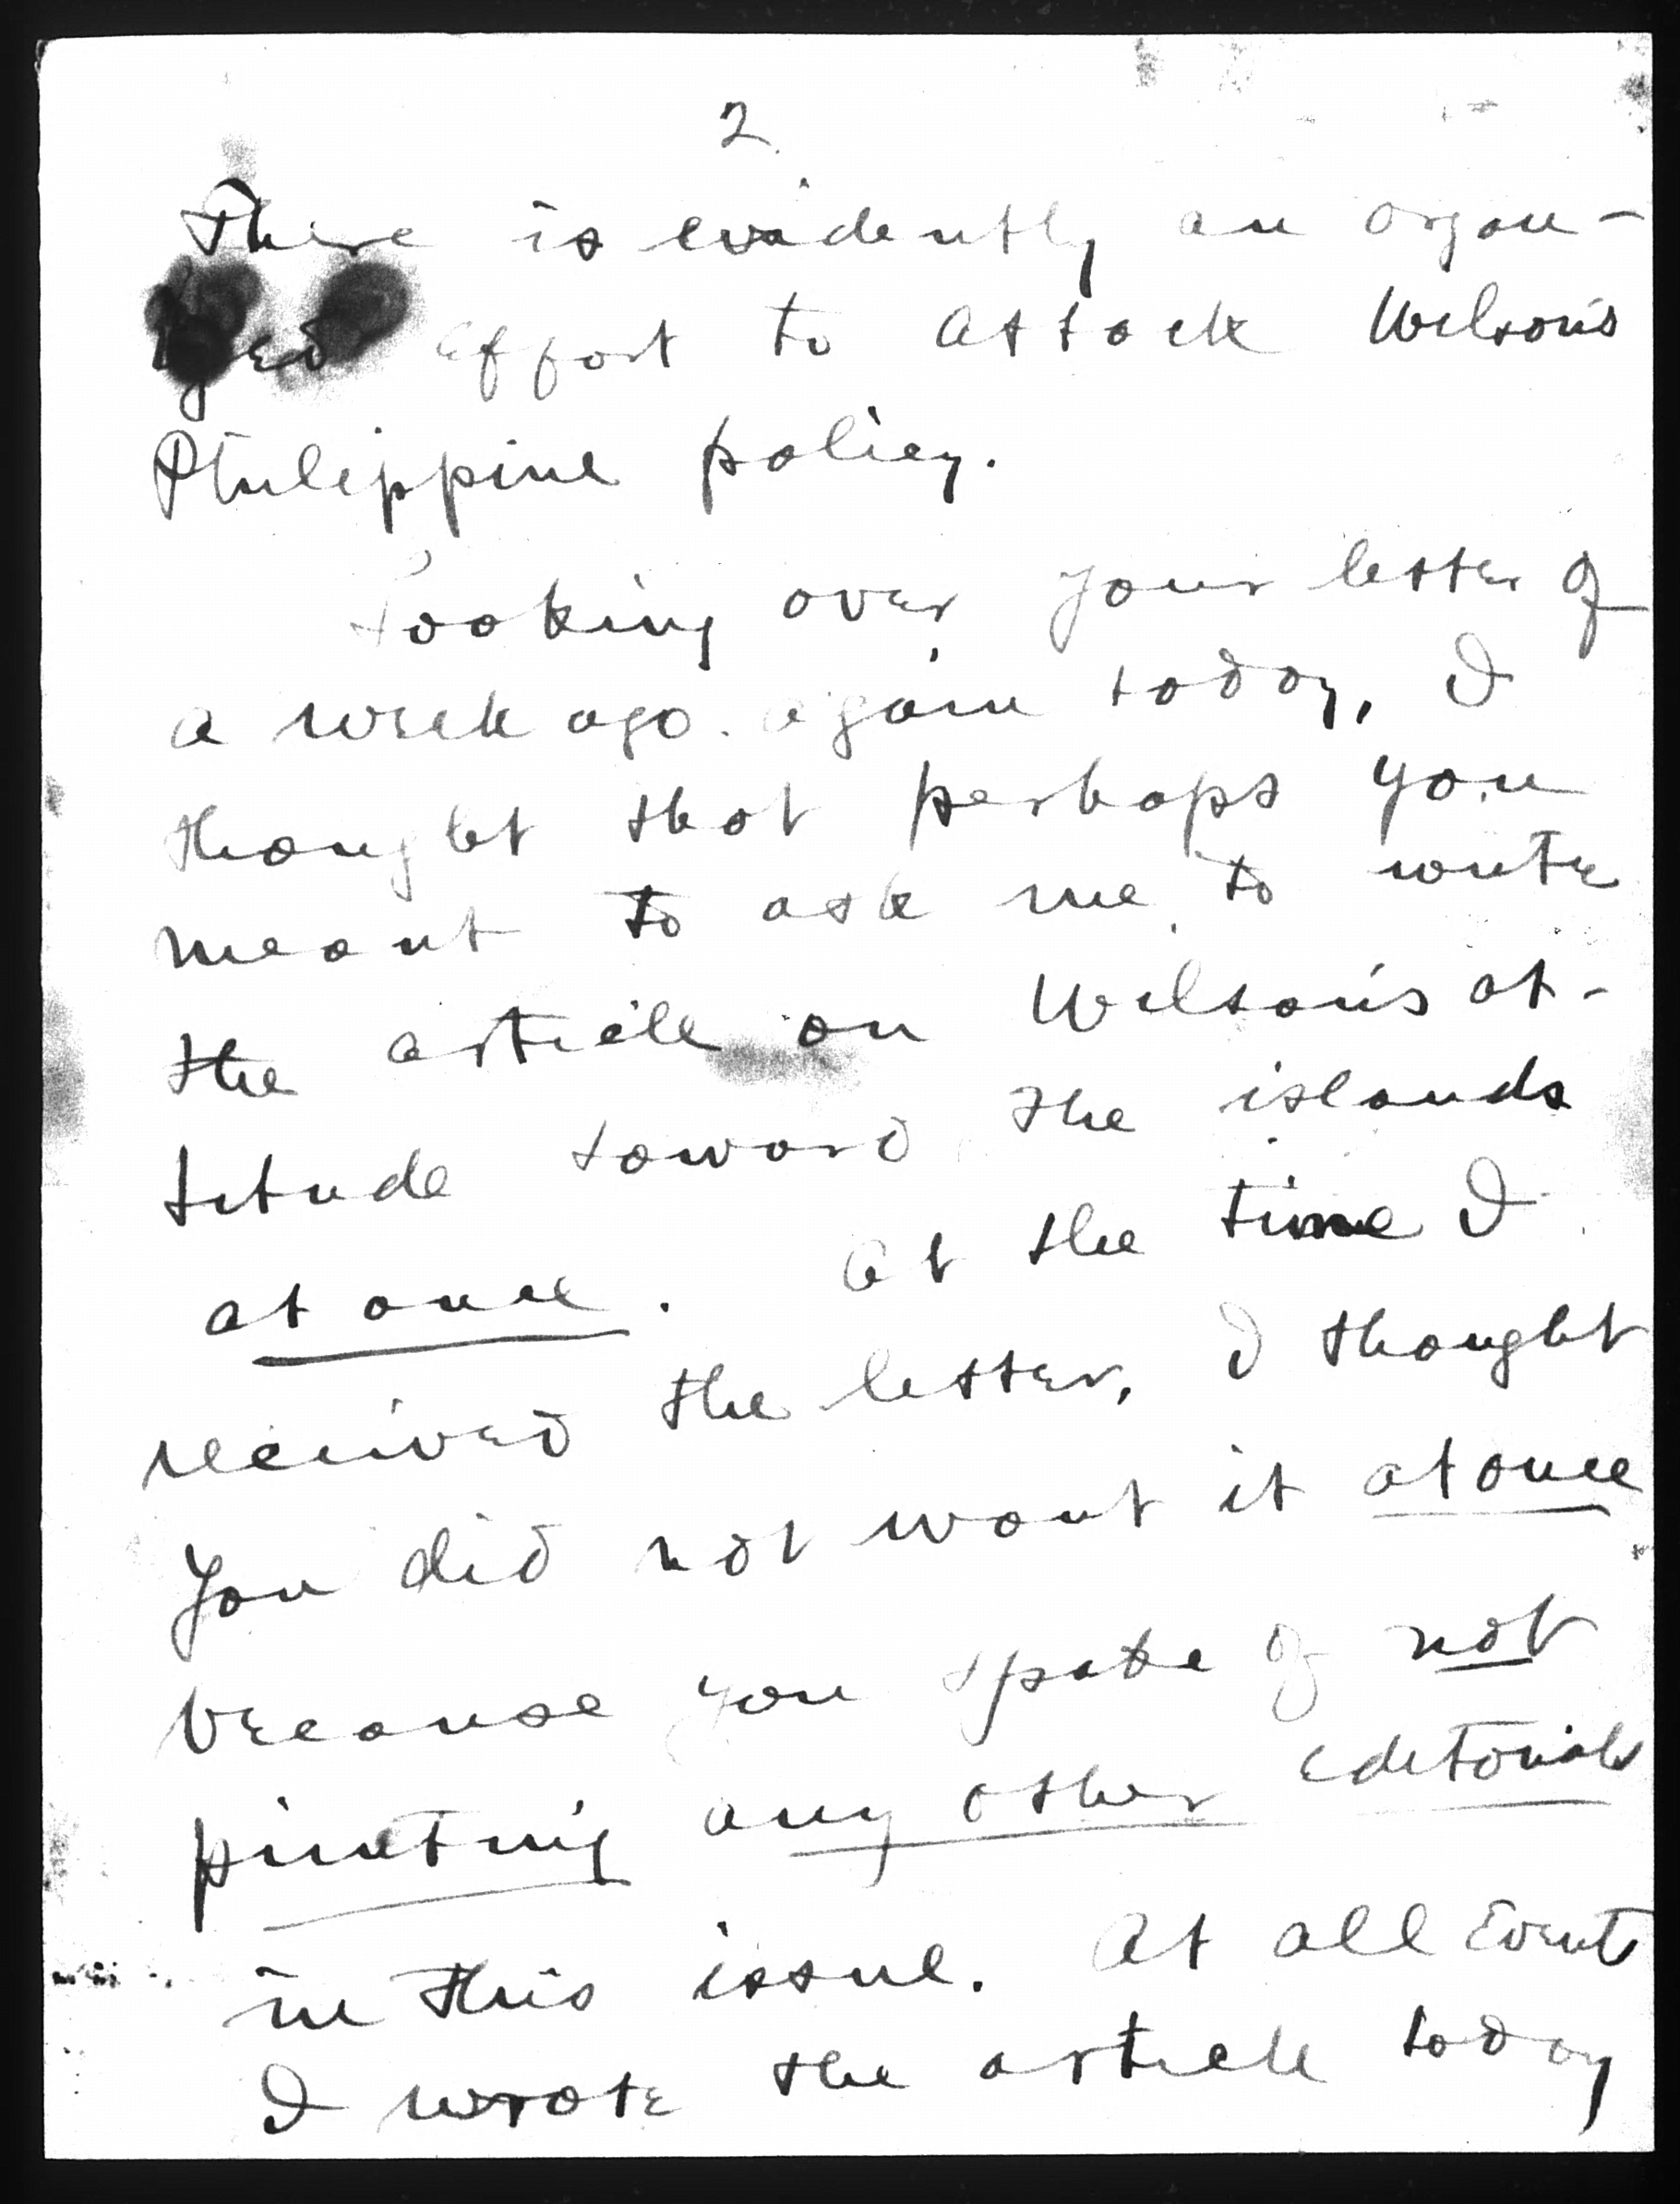 2.
There is evidently an organ-
ized effort to attack Wilson's
Philippine policy.
Looking over your letter of
a week ago again today, I
thought that perhaps you
meant to ask me to write
the article on Wilson's at-
titude toward the islands
at once. At the time I
received the letter, I thought
you did not want it at once
because you spoke of not
printing any other editorials
in this issue. At all events
I wrote the article today